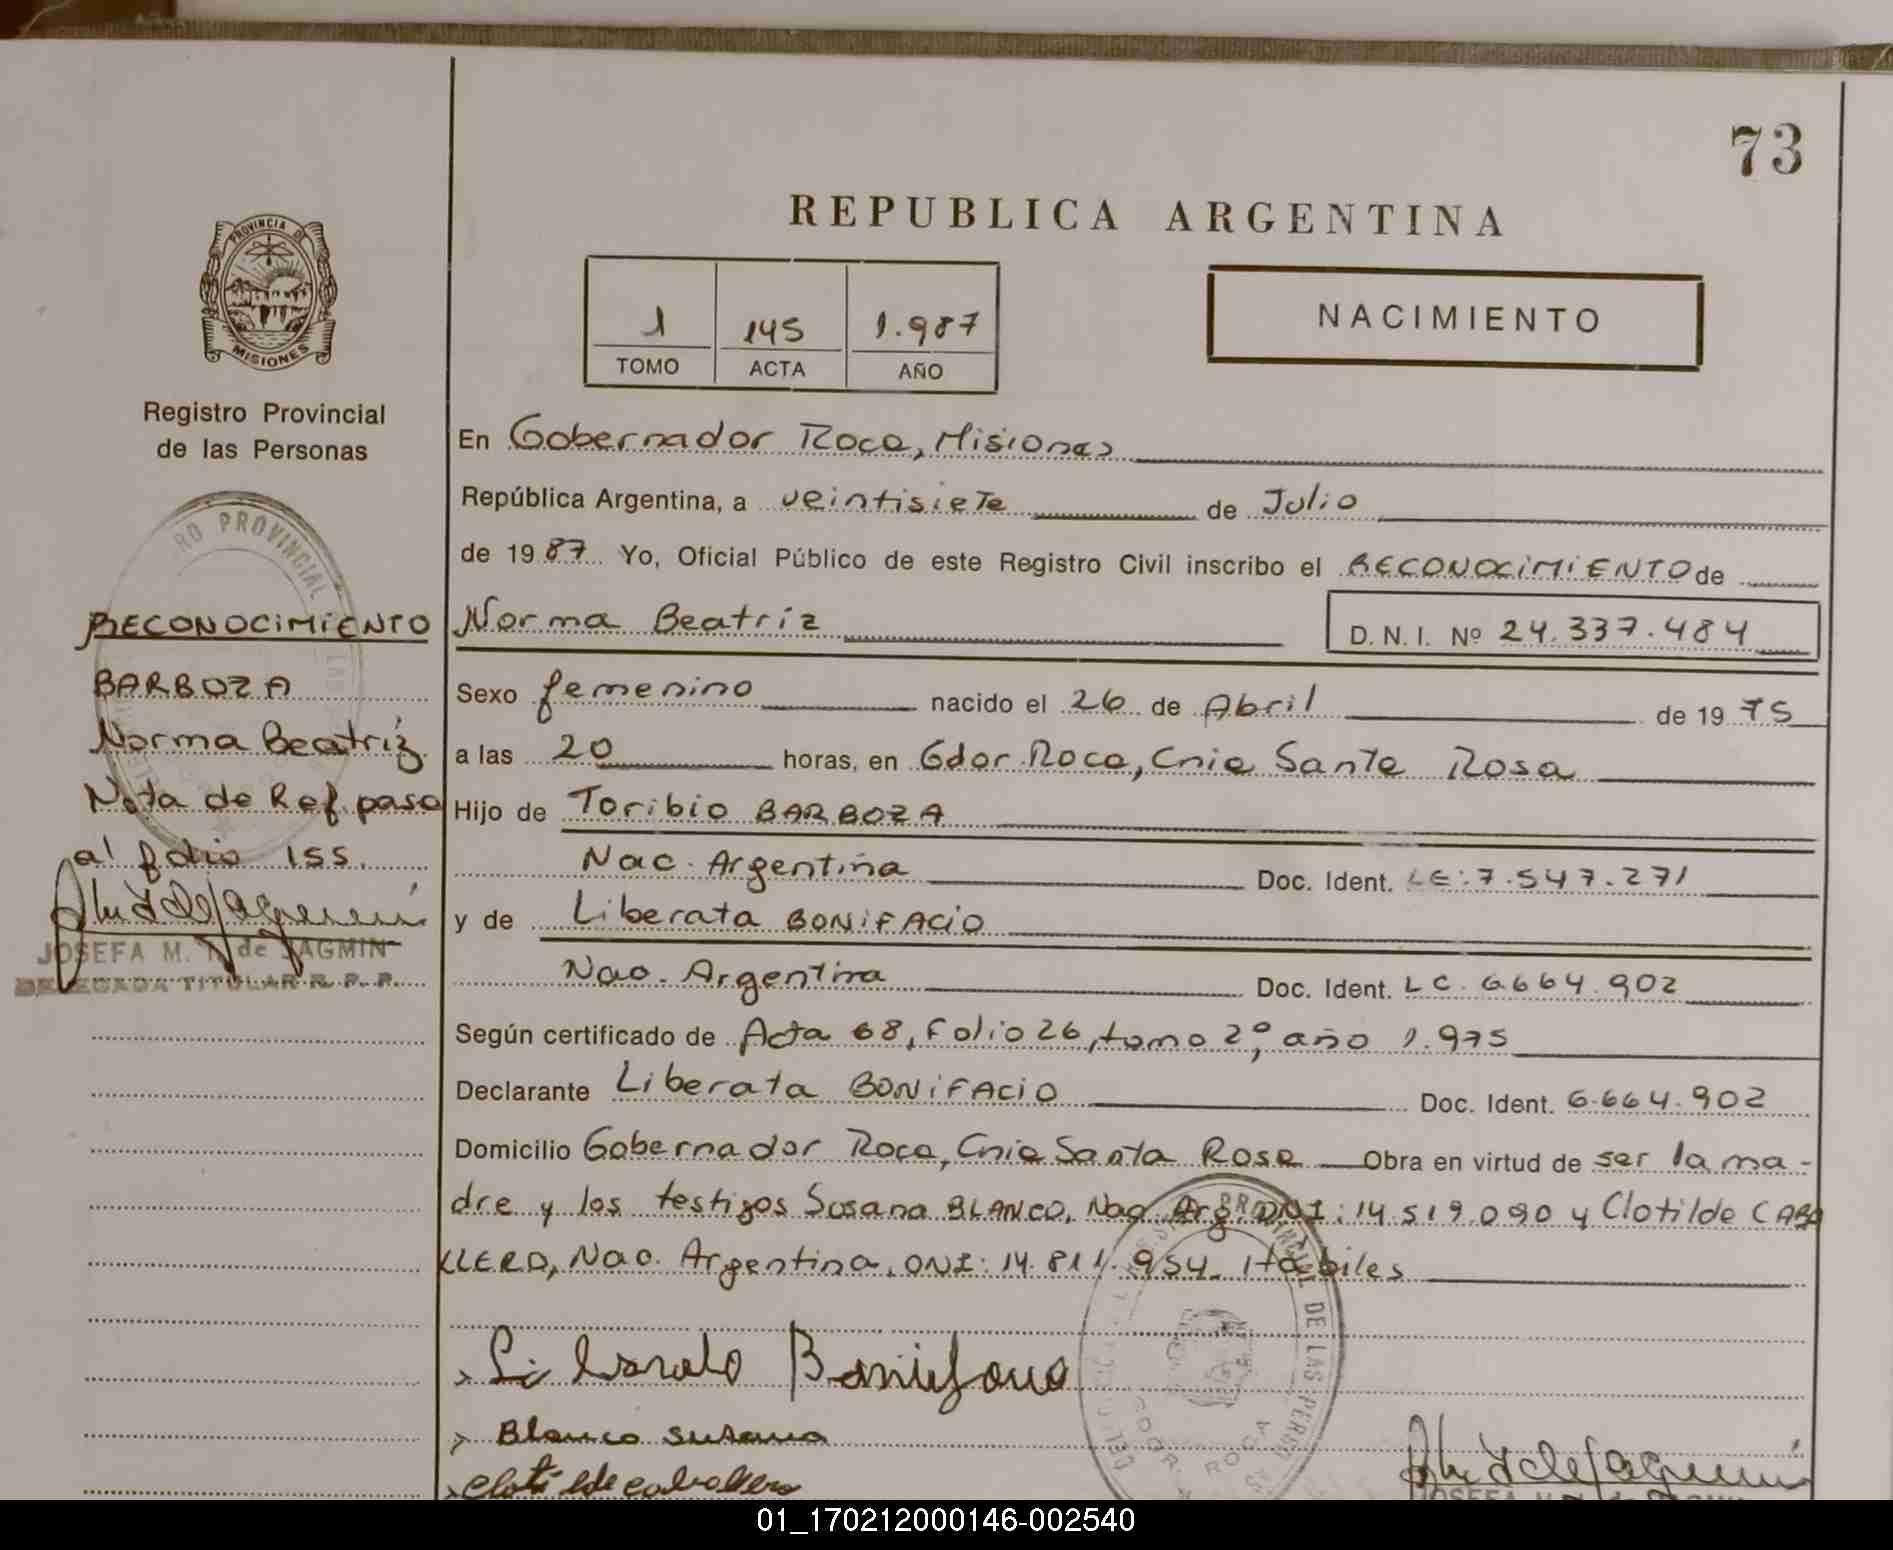 73
REPUBLICA ARGENTINA
1 145 1.987
TOMO ACTA AÑO
NACIMIENTO
PROVINCIA DE
MISIONES
Registro Provincial
de las Personas
En Gobernador Roca, Misiones
República Argentina, a veintisiete de Julio
de 1987 Yo, Oficial Público de este Registro Civil inscribo el RECONOCIMIENTO de
Norma Beatriz D.N.I. Nº 24.337.484
Sexo femenino nacido el 26 de Abril de 1975
a las 20 horas, en Gdor Roca, Cnia Santa Rosa
Hijo de Toribio BARBOZA
Nac. Argentina Doc. Ident. LE: 7.547.271
y de Liberata BONIFACIO
Nac. Argentina Doc. Ident. LC. 6.664.902
Según certificado de Acta 68, Folio 26, tomo 2º, año 1.975
Declarante Liberata BONIFACIO Doc. Ident. 6.664.902
Domicilio Gobernador Roca, Cnia Santa Rosa Obra en virtud de ser la ma-
dre y los testigos Susana BLANCO, Nac. Arg. DNI: 14.519.090 y Clotilde CABA
LLERO, Nac. Argentina, DNI: 14.811.954. Habiles
RECONOCIMIENTO
BARBOZA
Norma Beatriz
Nota de Ref. pasa
al folio 155.
JOSEFA M. de JAGMIN
DELEGADA TITULAR R. P. P.
RO PROVINCIAL
LAS
Liberata Bonifacio
Blanco Susana
Clotilde Caballero
PROVINCIAL DE LAS PERSO
GDOR. ROCA
01_170212000146-002540